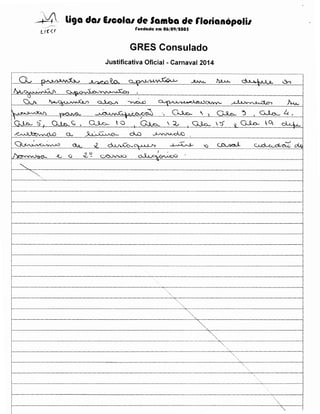 Liga das Escolas de Samba de Florianópolis
Fundada em 06/09/2005
LIESF
GRES Consulado
Justificativa Oficial - Carnaval 2014
A presente escola apresentou em seu desfile os
seguintes apontamentos.
As seguintes alas não apresentavam elementos su
ficientes para identificação: Ala 1, Ala 3, Ala 4,
Ala 5, Ala 6, Ala 10, Ala 12, Ala 15 e Ala 19
a leitura do enredo.
de 2 destaques entre o casal cidadão do
samba e o 2º carro alegórico.